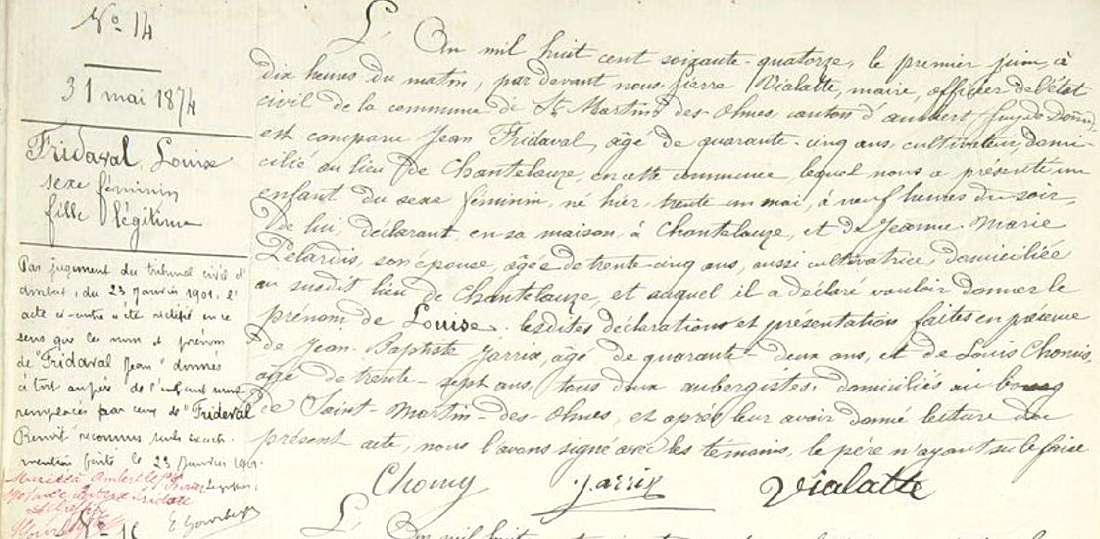 N° 14
31 mai 1874
Fridaval, Louise
sexe féminin
fille légitime
Par jugement du tribunal civil d'
Ambert, du 23 Janvier 1901, l'
acte ci-contre a été rectifié en ce
sens que les nom et prénom
de "Fridaval Jean" donnés
à tort au père de l'enfant sont
remplacés par ceux de "Frideval
Benoit" reconnus seuls exacts.
mention faite le 23 Janvier 1901.
Le greffier,
Mariée à Ambert le
L'An mil huit cent soixante-quatorze, le premier juin, à
dix heures du matin, par devant nous Pierre Vialatte, maire, officier de l'état
civil de la commune de St Martin-des-Olmes, canton d'Ambert (Puy de Dôme),
est comparu Jean Fridaval, âgé de quarante-cinq ans, cultivateur, domi-
cilié au lieu de Chantelauze, en cette commune, lequel nous a présenté un
enfant du sexe féminin, né hier trente un mai, à neuf heures du soir,
de lui, déclarant, en sa maison, à Chantelauze, et de Jeanne-Marie
Pelardis, son épouse, âgée de trente-cinq ans, aussi cultivatrice, domiciliée
au susdit lieu de Chantelauze, et auquel il a déclaré vouloir donner le
prénom de Louise. Lesdites déclarations et présentation faites en présence
de Jean-Baptiste Jarrix, âgé de quarante-deux ans, et de Louis Chomy,
âgé de trente-sept ans, tous deux aubergistes, domiciliés au bourg
de Saint-Martin-des-Olmes, et après leur avoir donné lecture du
présent acte, nous l'avons signé avec les témoins, le père n'ayant su le faire
Chomy Jarrix Vialatte
L'An mil huit